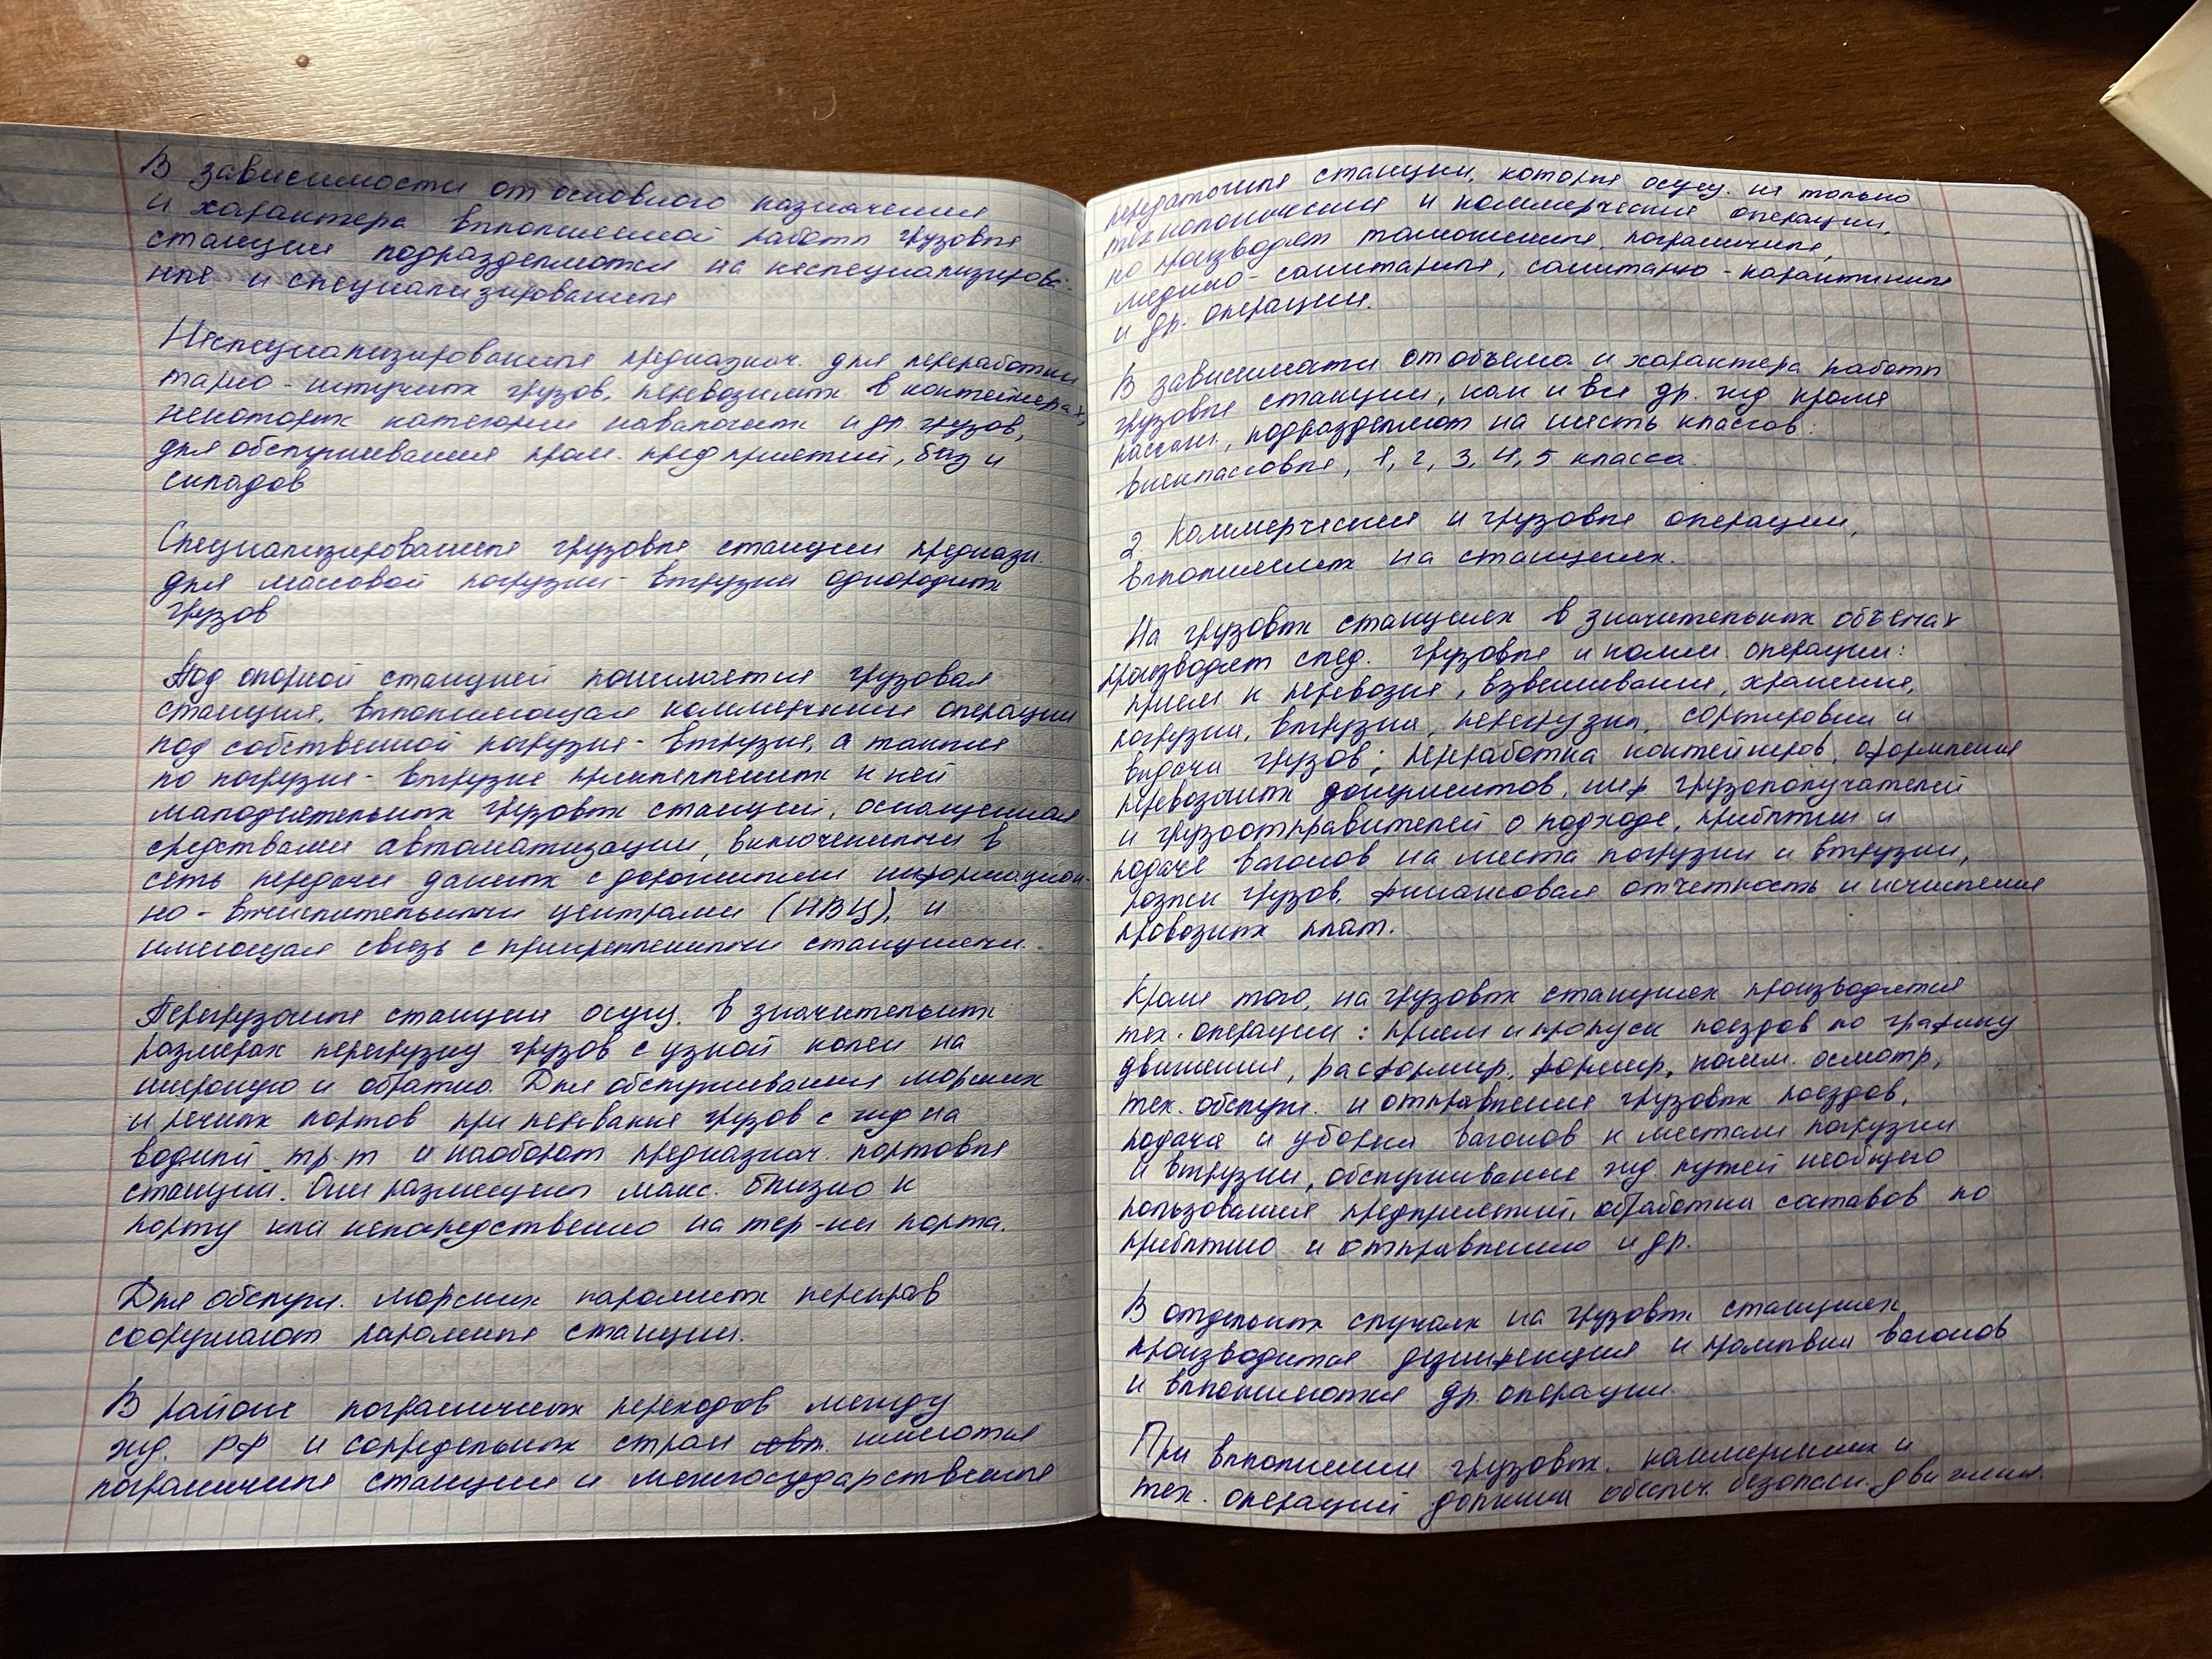 В зависимости от основного назначения
и характера выполняемой работы грузовые
станции подразделяются на неспециализирова-
нные и специализированные
Неспециализированные предназнач. для переработки
тарно-штучных грузов, перевозимых в контейнерах,
некоторых категории навалочных и др грузов,
для обслуживания пром. предприятий, баз и
складов
Специализированные грузовые станции предназн.
для массовой погрузки-выгрузки однородных
грузов
Под опорной станцией понимается грузовая
станция, выполняющая коммерческие операции
под собственной погрузке-выгрузке, а также
по погрузке-выгрузке прикрепленных к ней
малодеятельных грузовых станций, оснащенная
средствами автоматизации, включенными в
сеть передачи данных с дорожными информацион-
но-вычислительными центрами (ИВЦ), и
имеющая связь с прикрепленными станциями.
Перегрузочные станции осущ. в значительных
размерах перегрузку грузов с узкой колеи на
широкую и обратно. Для обслуживания морских
и речных портов при перевалке грузов с жд на
водный тр-т и наоборот предназнач. портовые
станции. Они размещены макс. близко к
порту или непосредственно на тер-ии порта.
Для обслуж. морских паромных переправ
сооружают паромные станции.
В районе пограничных переходов между
жд. РФ и сопредельных стран имеются
пограничные станции и межгосударственные
передаточные станции, которые осущ. не только
технологические и коммерческие операции,
но производят таможенные, пограничные,
медико-санитарные, санитарно-карантинные
и др. операции.
В зависимости от объема и характера работы
грузовые станции, как и все др. жд кроме
пассаж., подразделяют на шесть классов:
внеклассовые, 1, 2, 3, 4, 5 класса.
2. Коммерческие и грузовые операции,
выполняемых на станциях.
На грузовых станциях в значительных объемах
производят след. грузовые и комм. операции:
прием к перевозке, взвешивание, хранение,
погрузка, выгрузка, перегрузка, сортировки и
выдачи грузов; переработка контейнеров, оформление
перевозочных документов, инф грузополучателей
и грузоотправителей о подходе, прибытии и
подаче вагонов на места погрузки и выгрузки,
розыск грузов, финансовая отчетность и исчисления
провозных плат.
Кроме того, на грузовых станциях производятся
тех. операции: прием и пропуск поездов по графику
движения, расформир., формир., комм. осмотр,
тех. обслуж. и отправление грузовых поездов,
подача и уборка вагонов к местам погрузки
и выгрузки, обслуживание жд. путей необщего
пользования предприятий, обработка составов по
прибытию и отправлению и др.
В отдельных случаях на грузовых станциях
производится дезинфекция и промывка вагонов
и выполняются др. операции.
При выполнении грузовых, коммерческих и
тех. операций должна обеспеч. безопасн. движения